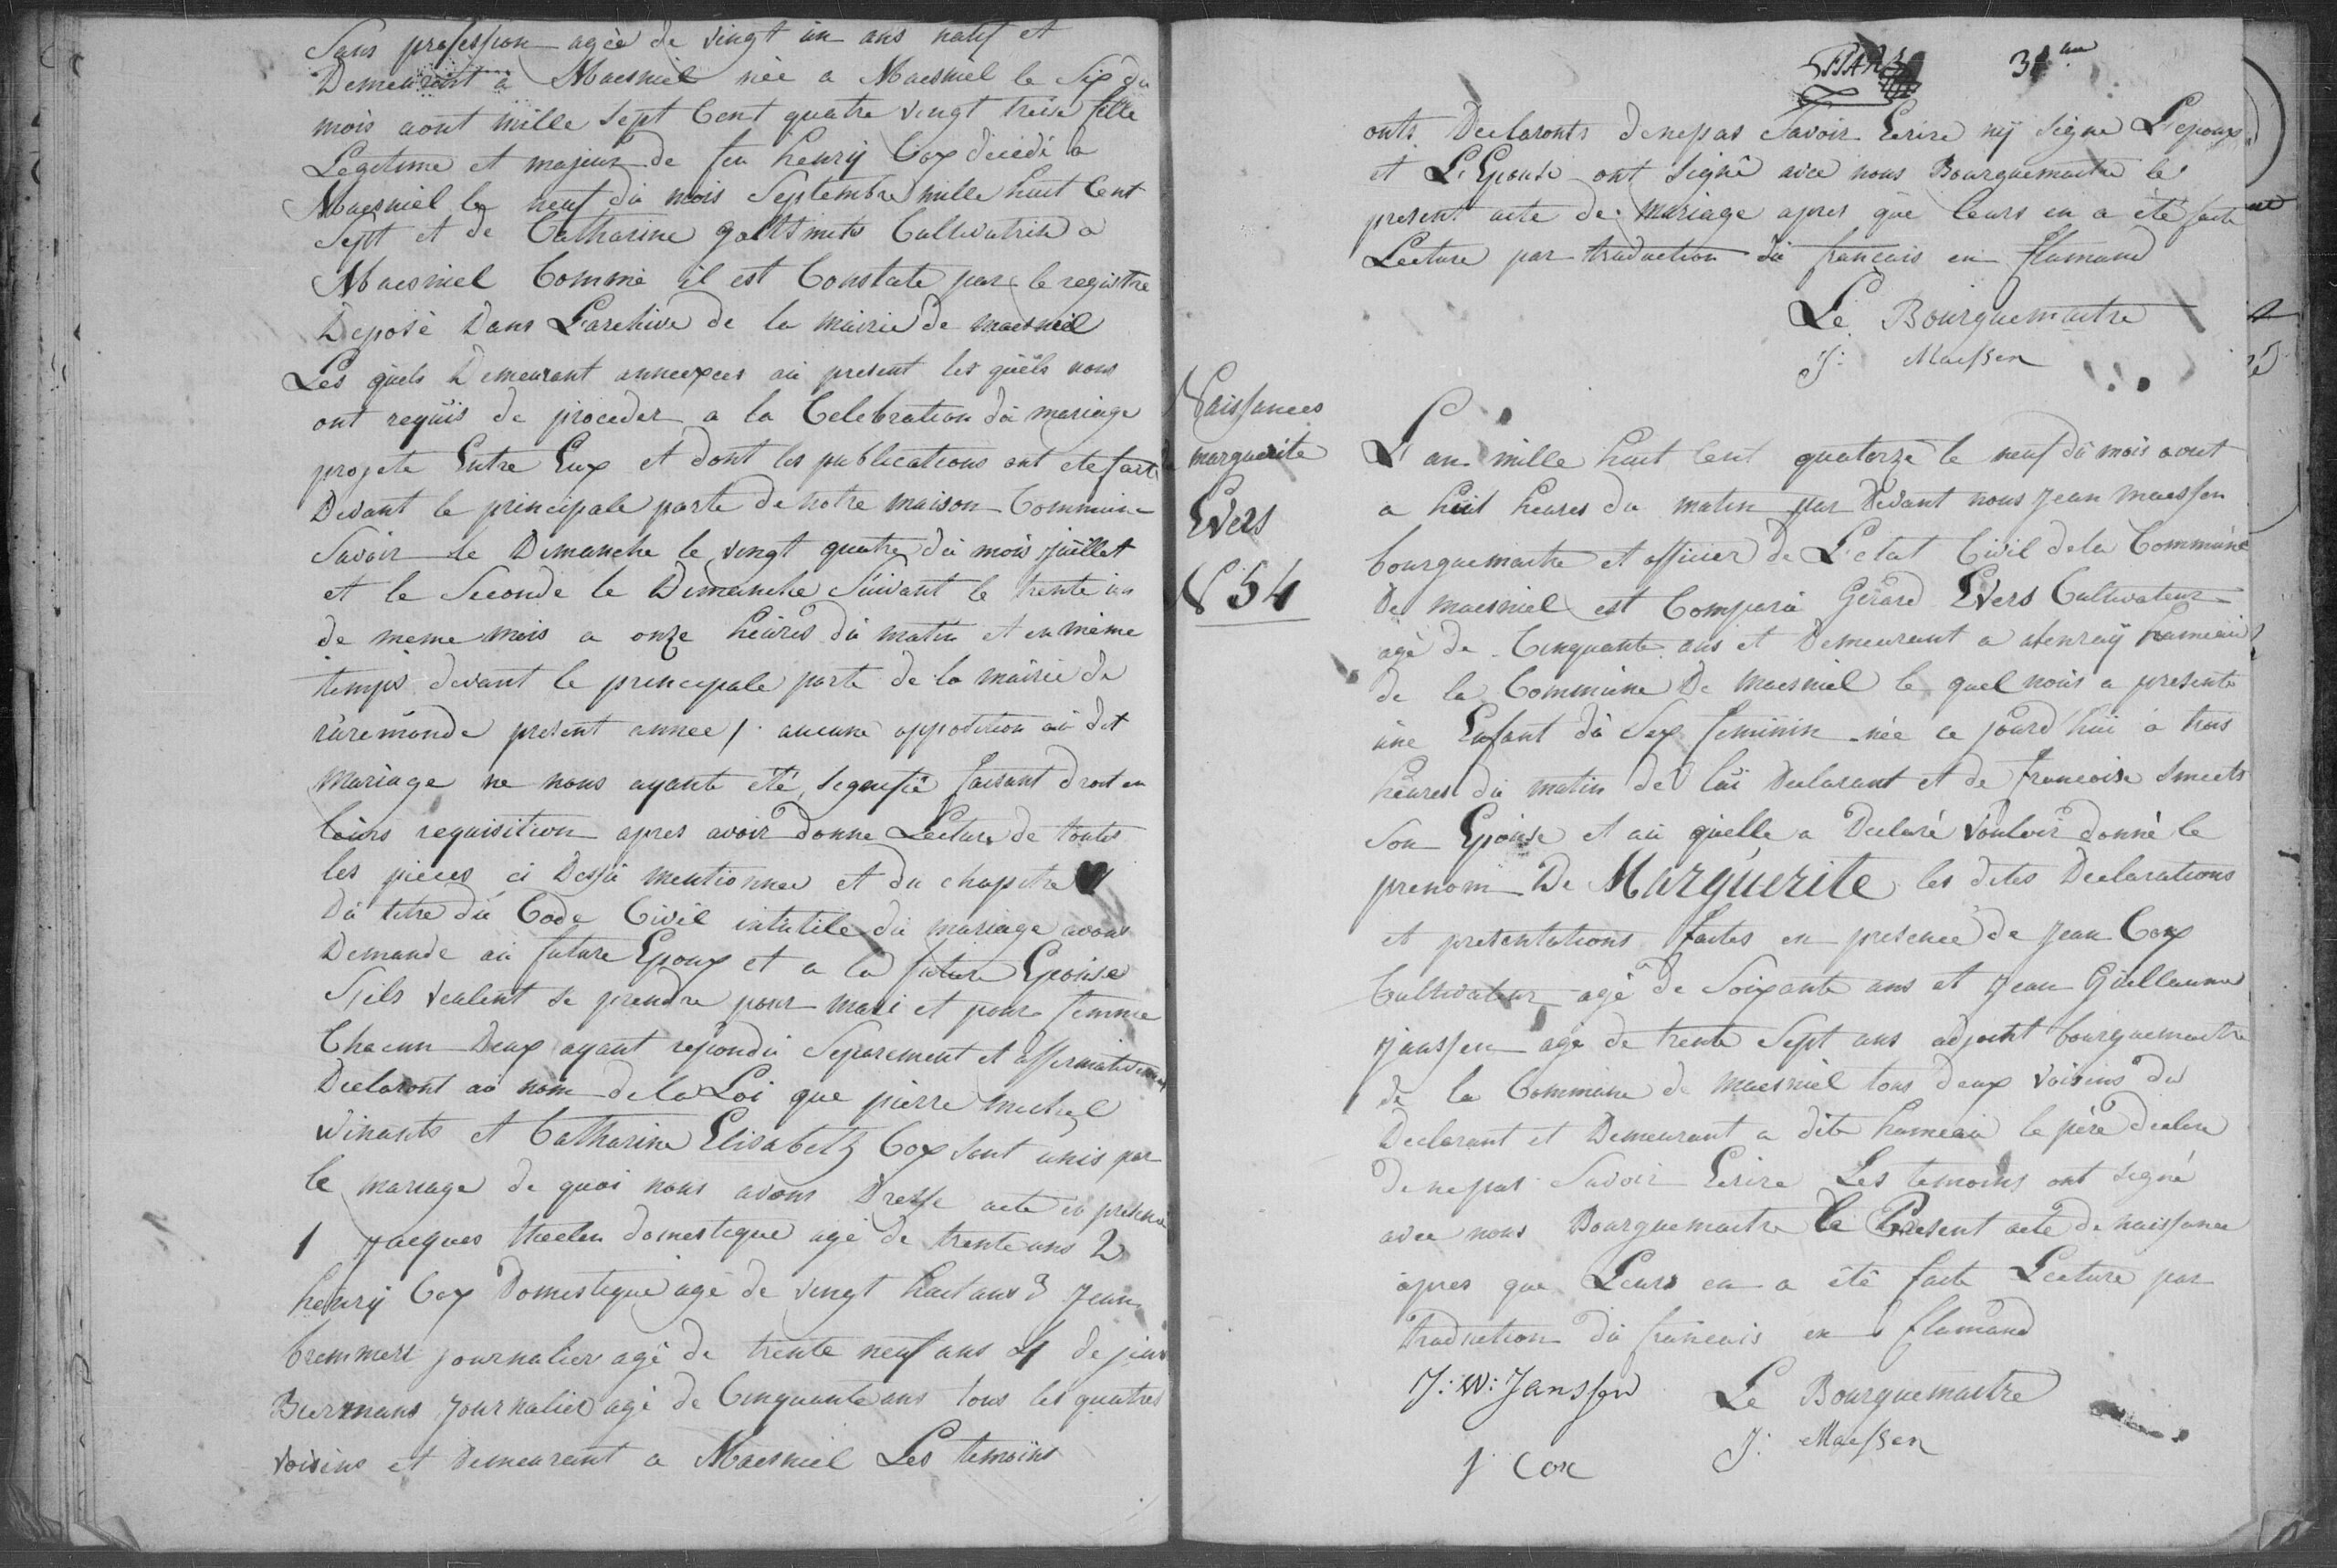 Sans profession agée de vingt un ans natif et
Demeurant a Maesniel née a Maesniel le Six du
mois aout mille Sept Cent quatre vingt treise fille
Legitime et majeur de feu henrij Cox décédé a
Maesniel le neuf du mois Septembre mille huit Cent
Sept et de Catharine goltsmets Cultivatrise a
Maesniel Comme il est Constate par le registre
Deposé Dans L'archive de la mairie de maesniel
Les quels Demeurant annexees au present les quels nous
ont requis de proceder a la Celebration du mariage
projete Entre Eux et dont les publications ont ete faite
Devant le principale porte de notre maison Commune
Savoir le Dimanche le vingt quatre du mois juillet
et le Seconde le Dimanche Suivant le trente un
de meme mois a onze heures du matin et en même
temps devant le principale porte de la mairie de
ruremonde present annee /. aucune opposition au dit
Mariage ne nous ayante été, signifié faisant droit en
leurs requisition apres avoir donne Lecture de toutes
les pieces ci Dessu mentionnee et du chapitre VI
Du titre du Code Civil intutile du mariage avons
Demande au future Epoux et a la future Epouse
S'ils veulent se prendre pour mari et pour femme
Chacun Deux ayant repondu Separement et affirmativement
Declaront au nom de la Loi que pierre michel
Winants et Catharine Elisabeth Cox sont unis par
le mariage de quoi nous avons Dresse acte en presence
1 Jacques theelen domestique agé de trente ans 2
henrij Cox Domestique agé de vingt huit ans 3 Jean
bremmers journalier agé de trente neuf ans 4 de
Burmans journalier agé de Cinquante ans tous les quatres
voisins et Demeurant a Maesniel Les temoins
onts Declaronts denepas Savoir Ecrire nij signe L'epoux
et L'Epouse ont signé avec nous Bourguemaitre le
present acte de mariage apres que leurs en a été faite
Lecture par traduction du francais en flamand
Le Bourguemaitre
J: Maessen
Naissances
marguerite
Evers
N 54
L'an mille huit Cent quatorze le neuf du mois aout
a huit heures du matin par Devant nous Jean maessen
bourguemaitre et officier de L'etat Civil de la Commune
De maesniel est Comparu Gérard Evers Cultivateur
agé de Cinquante ans et Demeurant a hameau
de la Commune De maesniel le quel nous a presente
une Enfant du Sex feminin née ce jourd'hui a trois
heures du matin de lui Declarant et de francoise smeets
Son Epouse et au quelle a Declaré vouloir donné le
prenom De Marguerite les dites Declarations
et presentations faites en presence de Jean Cox
Cultivateur agé de Soixante ans et Jean Guillaume
Janssen agé de trente Sept ans adjoint bourguemaitre
de la Commune de maesniel tous deux voisins du
Declarant et Demeurant a dite hameau le père declare
denepas Savoir Ecrire Les temoins ont signé
avec nous Bourguemaitre le Present acte de naissance
apres que Leurs en a été faite Lecture par
Traduction du francais en flamand
J: W: Janssen Le Bourguemaitre
J Cox J: Maessen